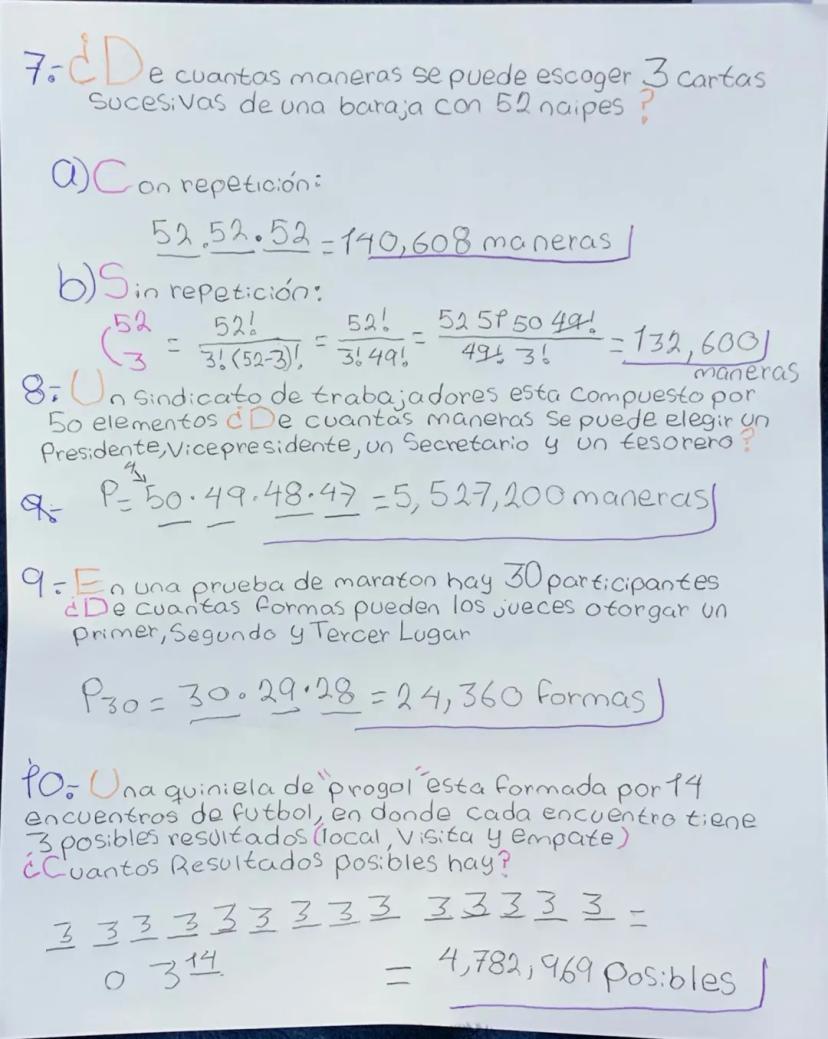 7.- ¿De cuantas maneras se puede escoger 3 cartas
sucesivas de una baraja con 52 naipes?
a) Con repetición:
52 . 52 . 52 = 140,608 maneras
b) Sin repetición:
(52 3 = 52! / 3! (52-3)! = 52! / 3! 49! = 52 51 50 49! / 49! 3! = 132,600
maneras
8.- Un sindicato de trabajadores esta compuesto por
50 elementos ¿De cuantas maneras se puede elegir un
Presidente, Vicepresidente, un Secretario y un tesorero?
9.- P= 50 . 49 . 48 . 47 = 5,527,200 maneras
9.- En una prueba de maraton hay 30 participantes
¿De cuantas formas pueden los jueces otorgar un
primer, Segundo y Tercer Lugar
P30 = 30 . 29 . 28 = 24,360 formas
10.- Una quiniela de "progol" esta formada por 14
encuentros de futbol, en donde cada encuentro tiene
3 posibles resultados (local, Visita y empate)
¿Cuantos Resultados posibles hay?
3 3 3 3 3 3 3 3 3 3 3 3 3 3 =
o 3^14 = 4,782,969 posibles